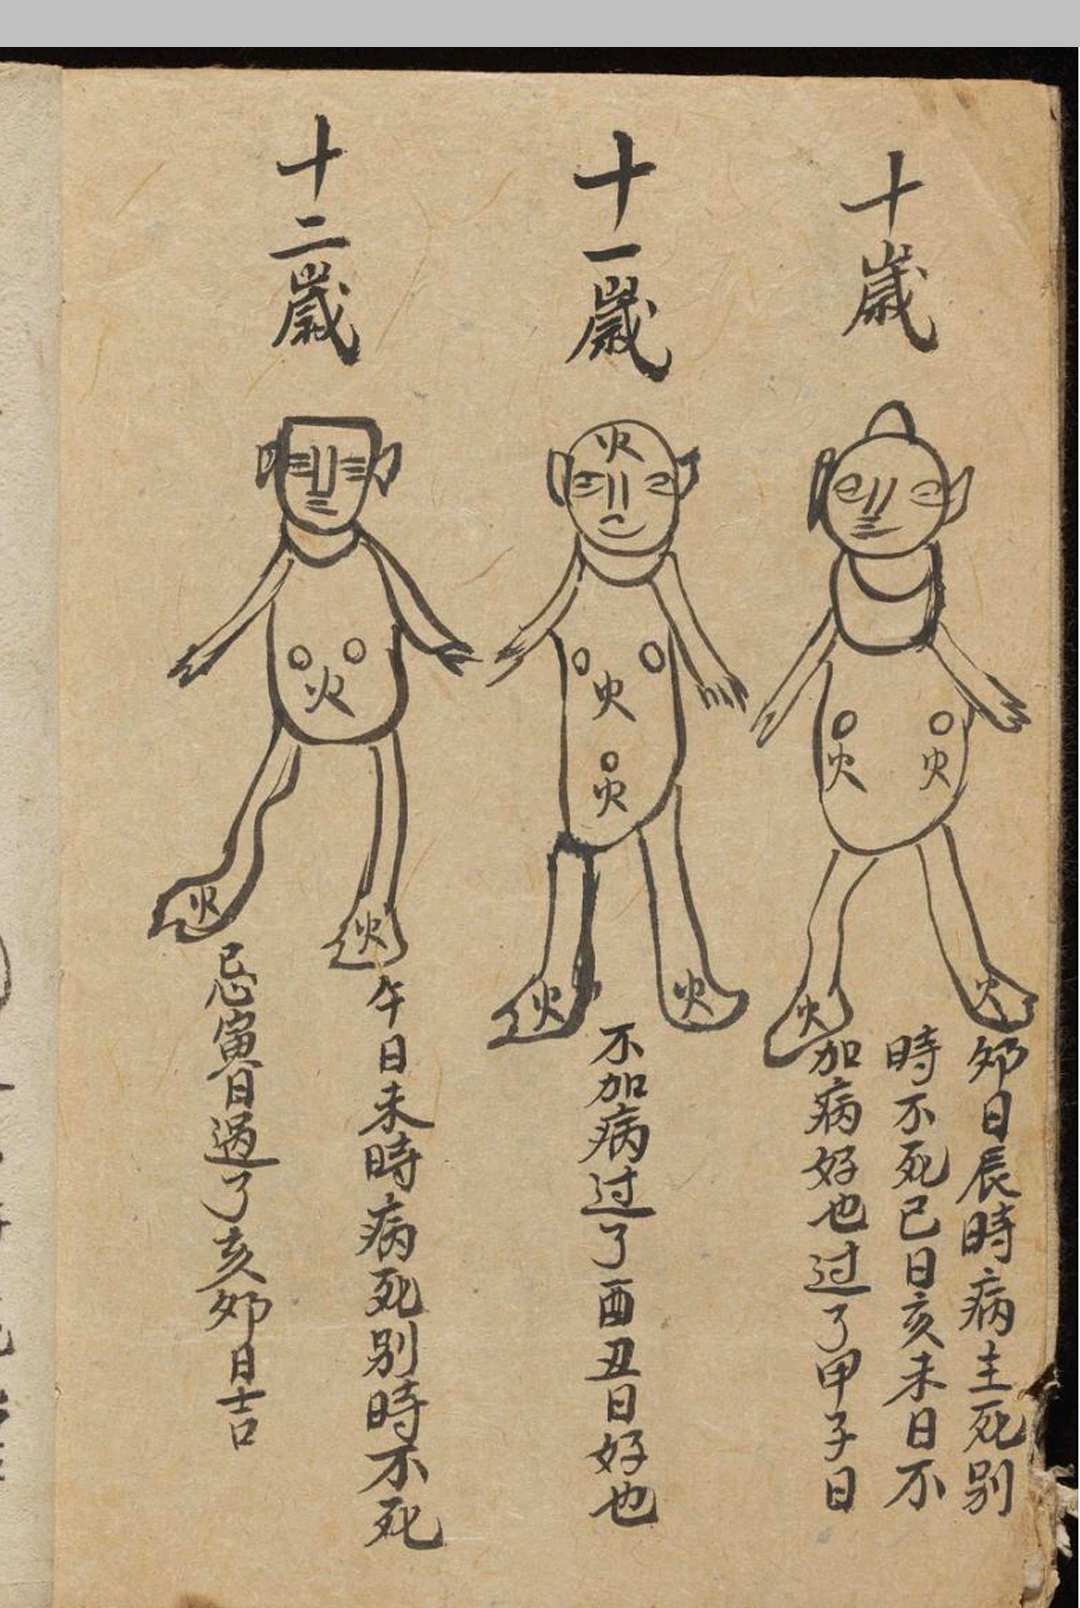 十歲
火
火
火
火
卯日辰時病主死别
時不死已日亥未日不
加病好也过了甲子日
十一歲
火
火
火
火
火
不加病过了酉丑日好也
十二歲
火
火
火
午日未時病死别時不死
忌寅日過了亥卯日吉